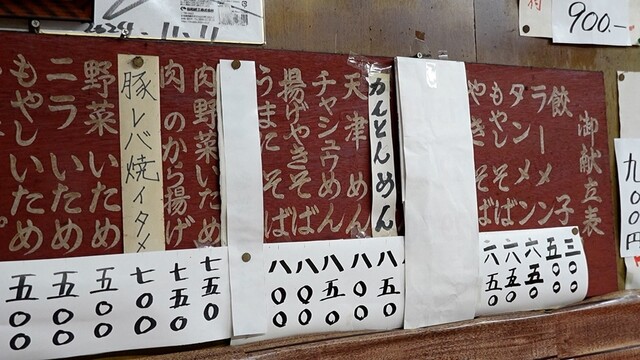 御献立表
餃子 三〇〇
ラーメン 五〇〇
タンメン 六五〇
もやしそば 六五〇
やきそば 六五〇
かんとんめん 八五〇
天津めん 八〇〇
チャシュウめん 八五〇
揚げやきそば 八〇〇
うまにそば 八〇〇
肉野菜いため 七五〇
肉のから揚げ 七五〇
豚レバ焼イタメ 七〇〇
野菜いため 五〇〇
ニラいため 五〇〇
もやしいため 五〇〇
900.-
九〇〇円